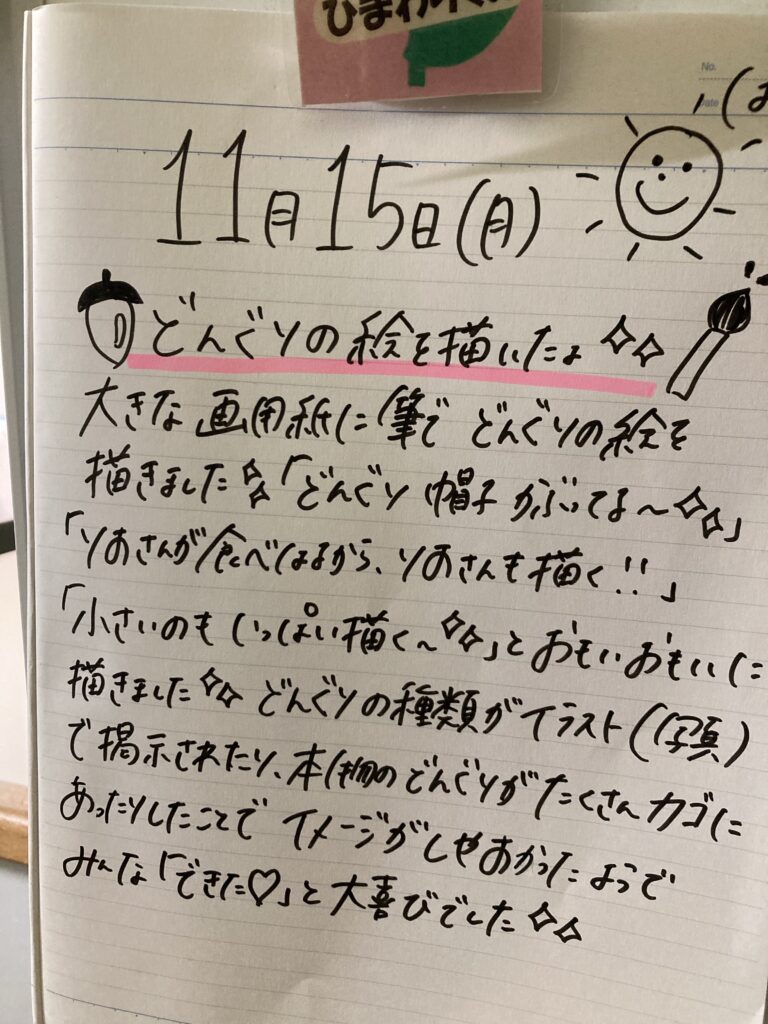 ひまわり
No.
Date
11月15日(月)
どんぐりの絵を描いたよ
大きな画用紙に筆でどんぐりの絵を
描きました「どんぐり帽子かぶってる〜」
「りすさんが食べはるから、りすさんも描く!!」
「小さいのもいっぱい描く〜」とおもいおもいに
描きました どんぐりの種類がイラスト(写真)
で掲示されたり、本物のどんぐりがたくさんカゴに
あったりしたことでイメージがしやすかったようで
みんな「できた♡」と大喜びでした